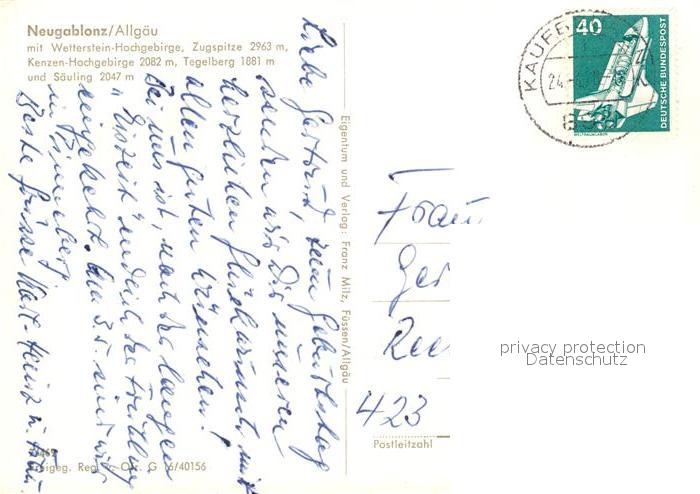 Neugablonz/Allgäu
mit Wetterstein-Hochgebirge, Zugspitze 2963 m,
Kenzen-Hochgebirge 2082 m, Tegelberg 1881 m
und Säuling 2047 m
Liebe Gertrud, zum Geburtstag
senden wir Dir unseren
herzlichen Glückwunsch mit
allen guten Wünschen!
Bei uns ist, nach der langen
"Eiszeit" endlich der Frühling
eingekehrt. Am 3.5. sind wir
in Pinneberg
Beste Grüsse Karl-Heinz u.
Eigentum und Verlag: Franz Milz, Füssen/Allgäu
Freigeg. Reg. Obb. G 16/40156
KAUFB
24.
895
40
DEUTSCHE BUNDESPOST
WELTRAUMLABOR
Frau
Ger
423
Postleitzahl
privacy protection
Datenschutz